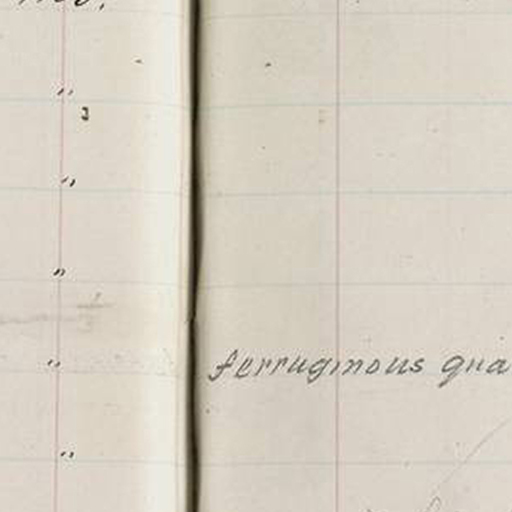 "
"
"
"
"
ferruginous qua